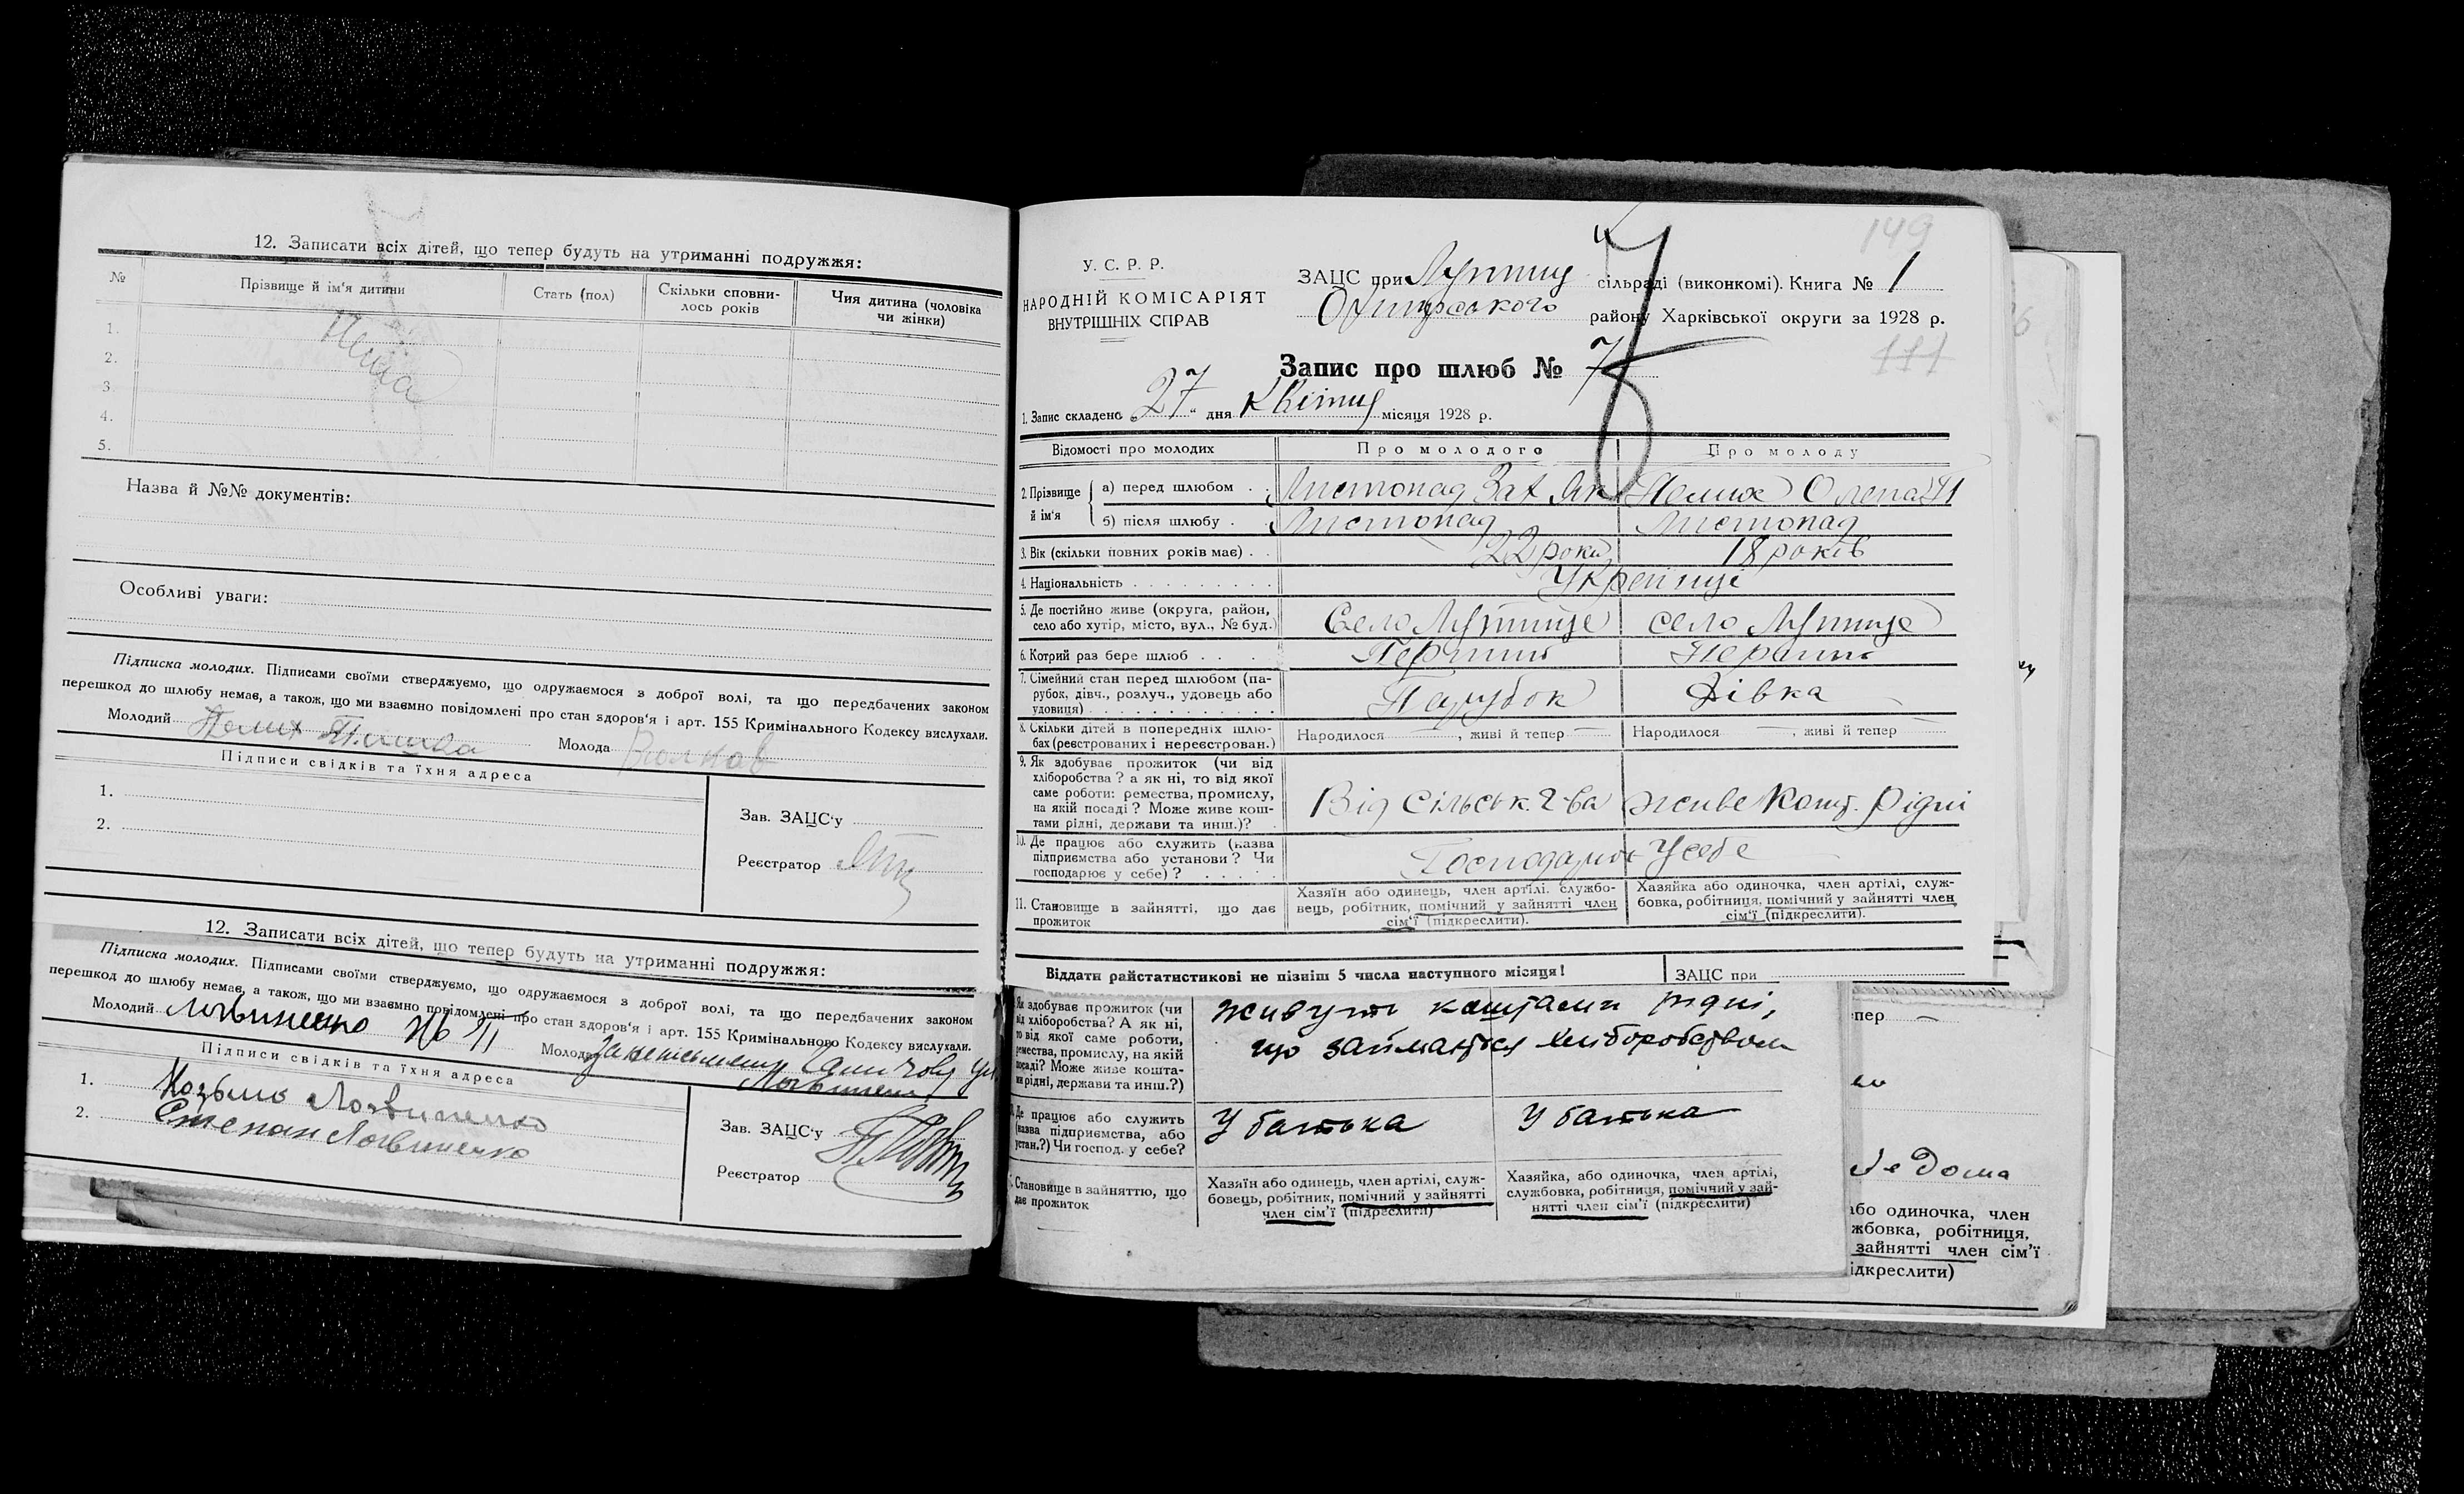 12. Записати всіх дітей, що тепер будуть на утриманні подружжя:
№
Прізвище й ім'я дитини
Стать (пол)
Скільки сповни-
лось років
Чия дитина (чоловіка
чи жінки)
1.
2.
3.
4.
5.
Нема
Назва й №№ документів:
Особливі уваги:
Підписка молодих. Підписами своїми стверджуємо, що одружаємося з доброї волі, та що передбачених законом
перешкод до шлюбу немає, а також, що ми взаємно повідомлені про стан здоров'я і арт. 155 Кримінального Кодексу вислухали.
Молодий Молода
Підписи свідків та їхня адреса
1.
2.
Зав. ЗАЦС'у
Реєстратор
12. Записати всіх дітей, що тепер будуть на утриманні подружжя:
Підписка молодих. Підписами своїми стверджуємо, що одружаємося з доброї волі, та що передбачених законом
перешкод до шлюбу немає, а також, що ми взаємно повідомлені про стан здоров'я і арт. 155 Кримінального Кодексу вислухали.
Молодий Молода
Підписи свідків та їхня адреса
1. Козьма Логвиненко
2. Степан Логвиненко
Зав. ЗАЦС'у
Реєстратор
149
У. С. Р. Р.
НАРОДНІЙ КОМІСАРІЯТ
ВНУТРІШНІХ СПРАВ
ЗАЦС при сільраді (виконкомі). Книга № 1
району Харківської округи за 1928 р.
111
Запис про шлюб № 7
7
1. Запис складено „27“ дня Квітня місяця 1928 р.
Відомості про молодих
Про молодого
Про молоду
2. Прізвище й ім'я
а) перед шлюбом . .
Листопад Зах Як
Олена
б) після шлюбу .
Листопад
Листопад
3. Вік (скільки повних років має) . .
22 роки
18 років
4. Національність
Українці
5. Де постійно живе (округа, район,
село або хутір, місто, вул., № буд.)
Село Лутище
село Лутище
6. Котрий раз бере шлюб . . .
Перший
Перший
7. Сімейний стан перед шлюбом (па-
рубок, дівч., розлуч., удовець або
удовиця)
Парубок
Дівка
8. Скільки дітей в попередніх шлю-
бах (реєстрованих і нереєстрован.)
Народилося — , живі й тепер —
Народилося — , живі й тепер —
9. Як здобуває прожиток (чи від
хліборобства? а як ні, то від якої
саме роботи: ремества, промислу,
на якій посаді? Може живе кош-
тами рідні, держави та инш.)?
Від сільськ г-ва
живе кошт. рідні
10. Де працює або служить (назва
підприємства або установи? Чи
господарює у себе)?
Господарює у себе
11. Становище в зайнятті, що дає
прожиток
Хазяїн або одинець, член артілі, службо-
вець, робітник, помічний у зайнятті член
сім'ї (підкреслити).
Хазяйка або одиночка, член артілі, служ-
бовка, робітниця, помічний у зайнятті член
сім'ї (підкреслити).
Віддати райстатистикові не пізніш 5 числа наступного місяця!
ЗАЦС при
Як здобуває прожиток (чи
від хліборобства? А як ні,
то від якої саме роботи,
ремества, промислу, на якій
посаді? Може живе кошта-
ми рідні, держави та инш.?)
живуть коштами рідні,
що займаються хліборобством
Де працює або служить
(назва підприємства, або
устан.?) Чи господ. у себе?
У батька
У батька
Становище в зайняттю, що
дає прожиток
Хазяїн або одинець, член артілі, служ-
бовець, робітник, помічний у зайнятті
член сім'ї (підреслити)
Хазяйка, або одиночка, член артілі,
службовка, робітниця, помічний у зай-
нятті член сім'ї (підкреслити)
тепер —
дома
або одиночка, член
жбовка, робітниця,
зайнятті член сім'ї
ідкреслити)